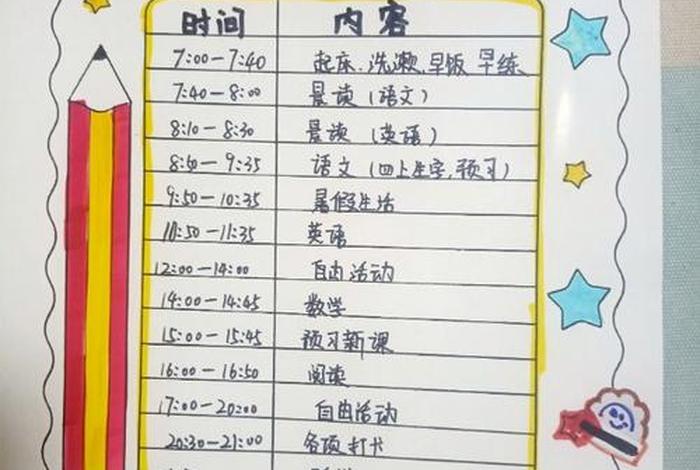 时间 内容
7:00—7:40 起床.洗漱.早饭 早练
7:40—8:00 晨读(语文)
8:10—8:30 晨读(英语)
8:50—9:35 语文(四上生字,预习)
9:50—10:35 暑假生活
10:50—11:35 英语
12:00—14:00 自由活动
14:00—14:45 数学
15:00—15:45 预习新课
16:00—16:50 阅读
17:00—20:00 自由活动
20:30—21:00 各项打卡